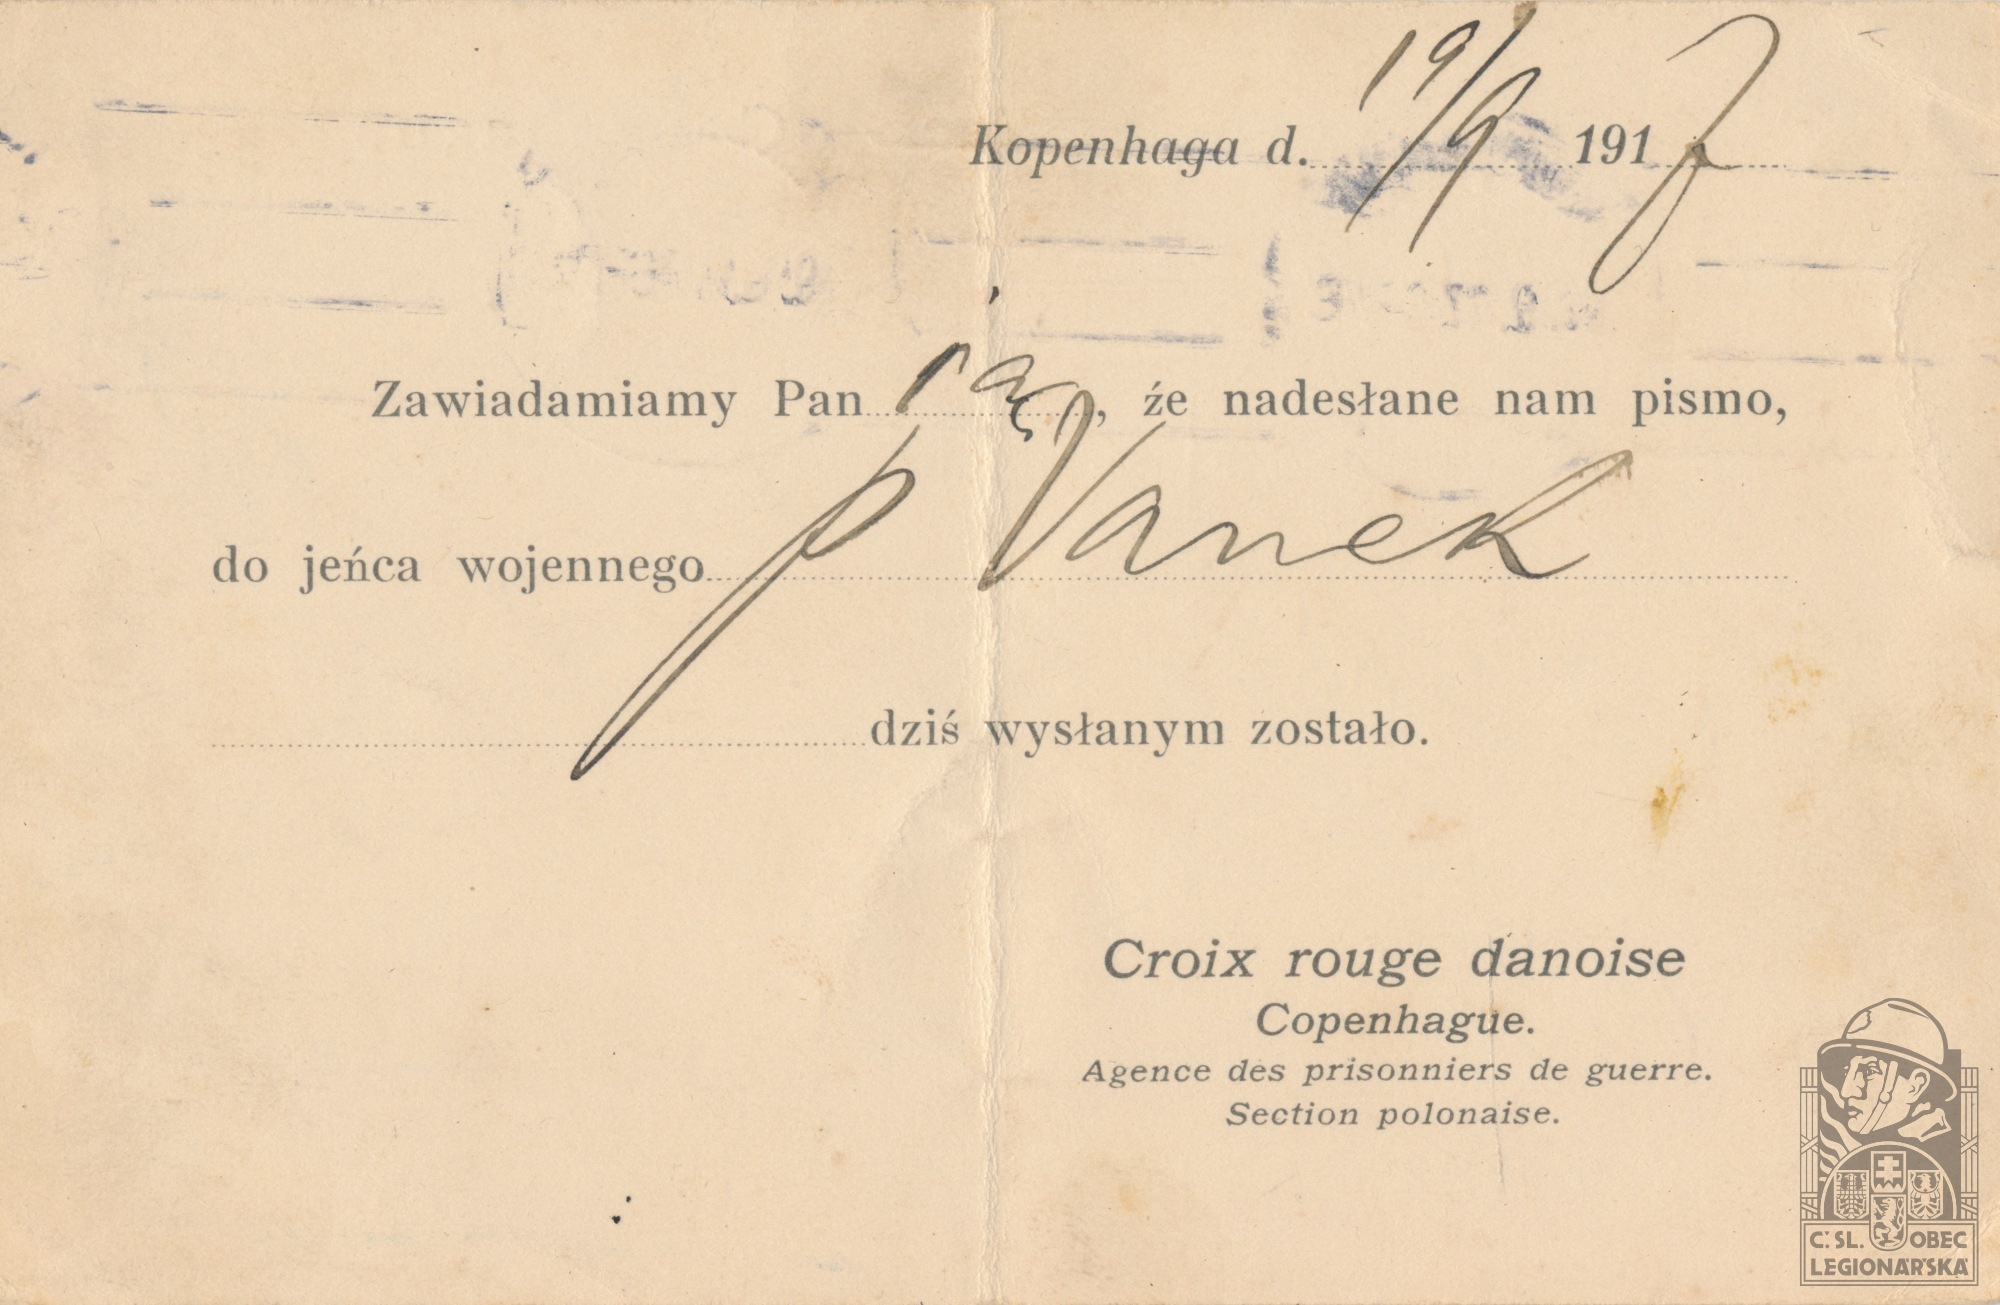 Kopenhaga d. 19/9 1917
Zawiadamiamy Pan ią, że nadesłane nam pismo,
do jeńca wojennego p Vanek
dziś wysłanym zostało.
Croix rouge danoise
Copenhague.
Agence des prisonniers de guerre.
Section polonaise.
Č. SL. OBEC
LEGIONÁŘSKÁ